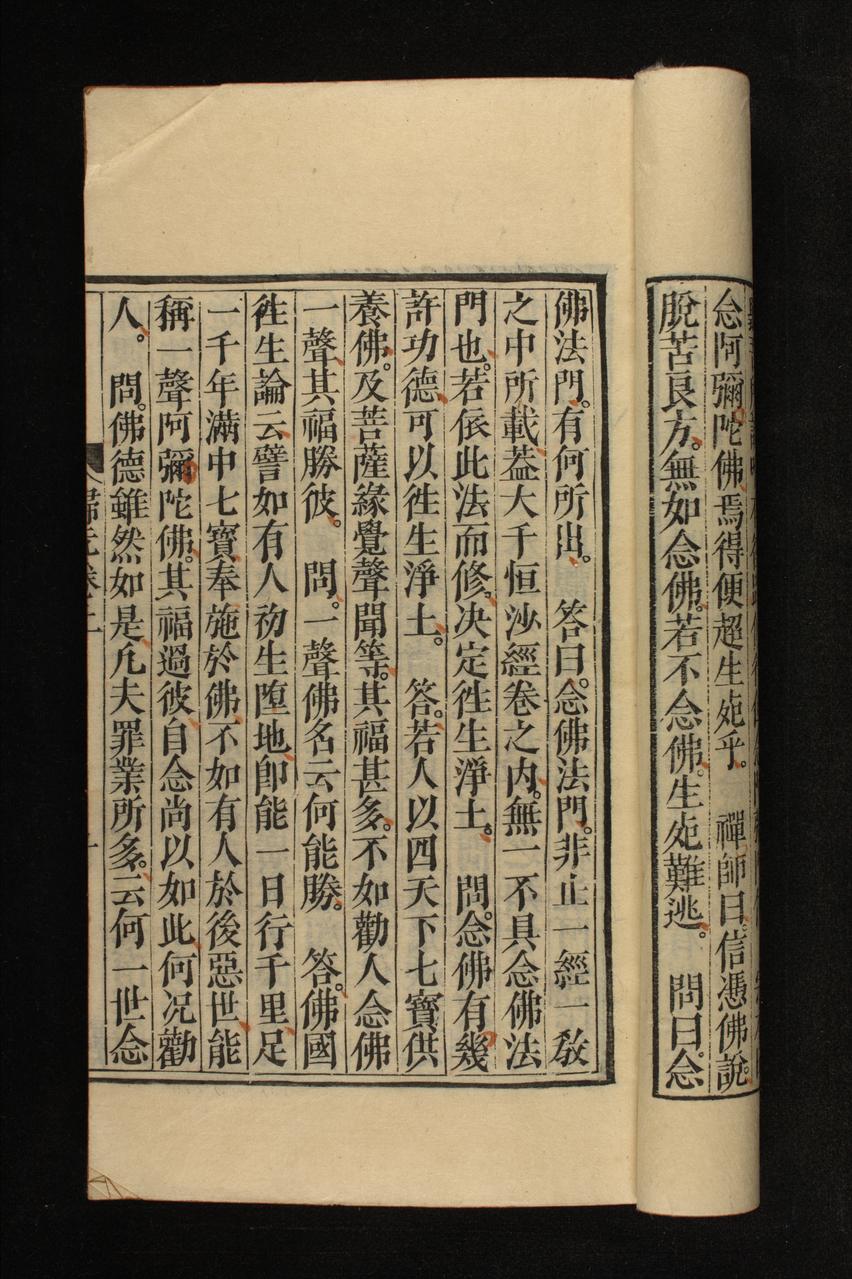 念阿彌陀佛。焉得便超生死乎。　禪師曰。信憑佛說。
脫苦良方。無如念佛。若不念佛。生死難逃。　問曰。念
佛法門。有何所出。　答曰。念佛法門。非止一經一教
之中所載。葢大千恒沙經卷之内。無一不具念佛法
門也。若依此法而修。决定徃生淨土。　問。念佛有幾
許功德。可以徃生淨土。　答。若人以四天下七寳供
養佛。及菩薩緣覺聲聞等。其福甚多。不如勸人念佛
一聲。其福勝彼。　問。一聲佛名。云何能勝。　答。佛國
徃生論云。譬如有人。初生墮地。即能一日行千里。足
一千年。滿中七寳。奉施於佛。不如有人。於後惡世。能
稱一聲阿彌陀佛。其福過彼。自念尚以如此。何况勸
人。　問。佛德雖然如是。凡夫罪業所多。云何一世念
歸元卷上